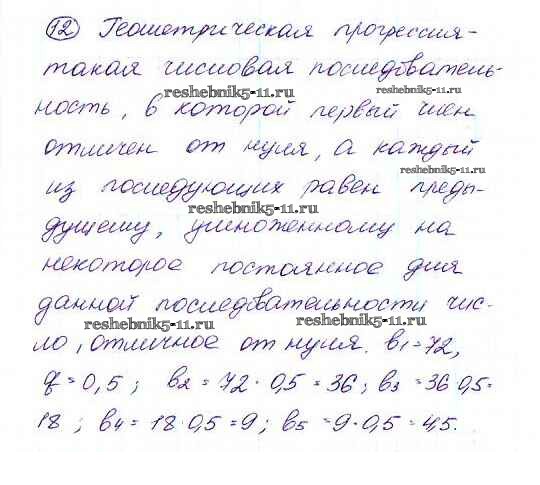 12 Геометрическая прогрессия-
такая числовая последователь-
reshebnik5-11.ru reshebnik5-11.ru
ность, в которой первый член
отличен от нуля, а каждый
reshebnik5-11.ru
из последующих равен преды-
reshebnik5-11.ru
дущему, умноженному на
некоторое постоянное для
данной последовательности чис-
reshebnik5-11.ru reshebnik5-11.ru
ло, отличное от нуля. b1=72,
q=0,5; b2=72·0,5=36; b3=36·0,5=
18; b4=18·0,5=9; b5=9·0,5=4,5.